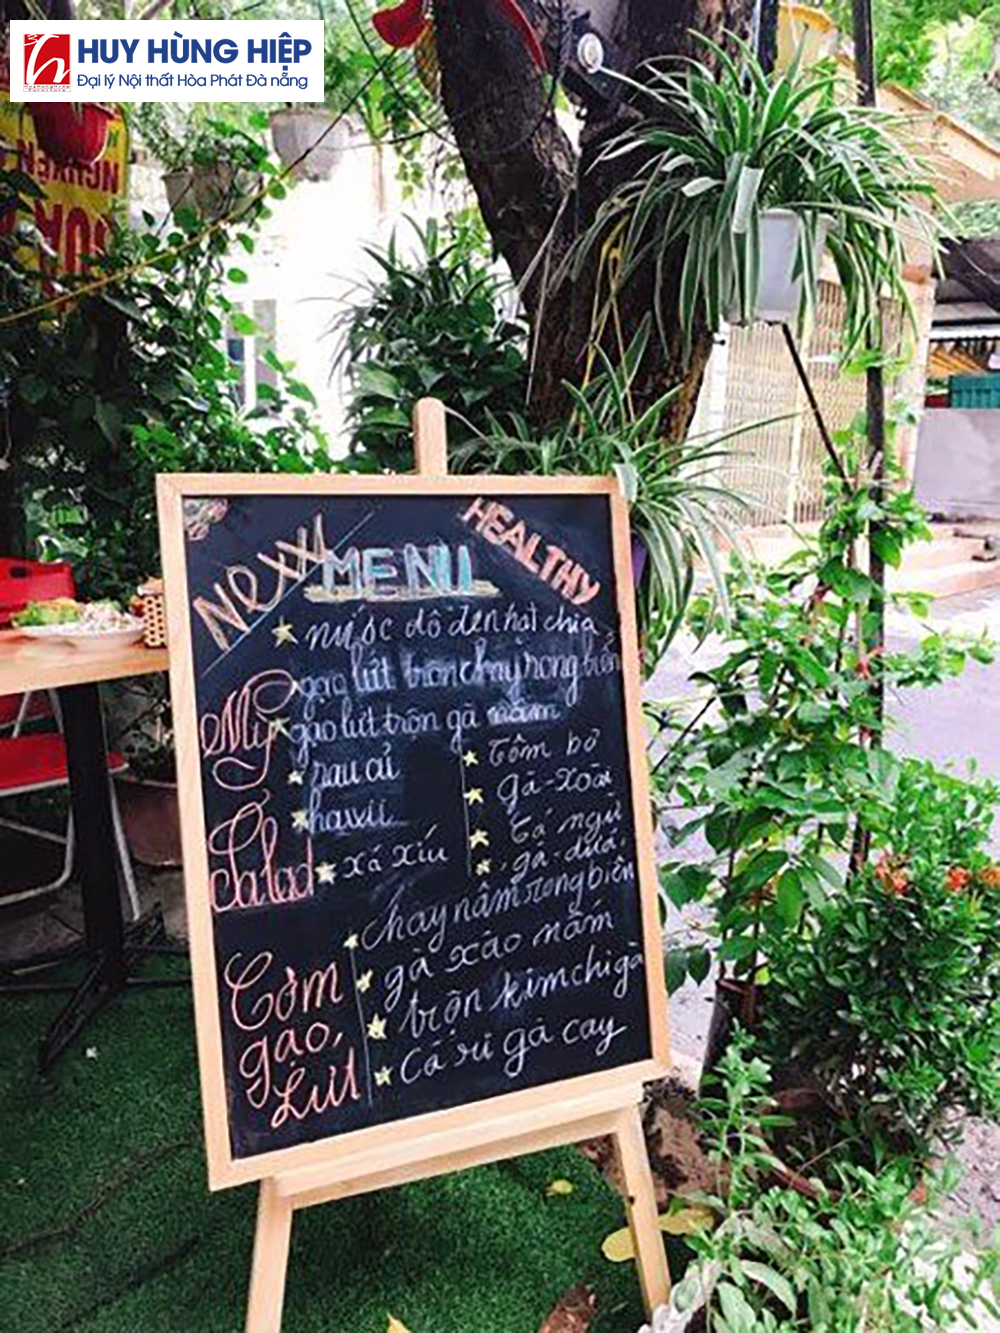 HUY HÙNG HIỆP
Đại lý Nội thất Hòa Phát Đà nẵng
New
MENU
HEALTHY
nước đỗ đen hạt chia
Mỳ
gạo lứt trộn chay rong biển
gạo lứt trộn gà nấm
Salad
rau củ
hawii
xá xíu
Tôm bơ
gà-xoài
Cá ngừ
gà-dứa
Cơm gạo, Lứt
chay nấm rong biển
gà xào nấm
trộn kimchi gà
Cà ri gà cay